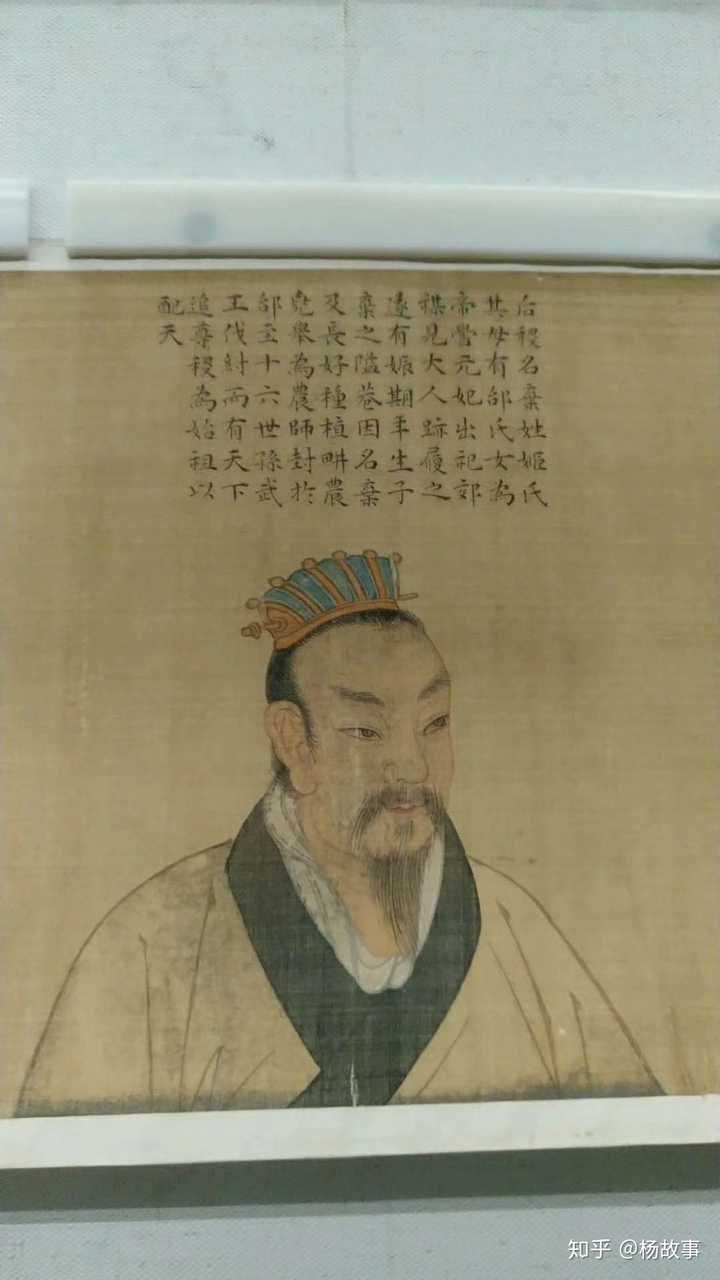 后稷名棄姓姬氏
其母有邰氏女為
帝嚳元妃出祀郊
禖見大人跡履之
遂有娠期年生子
棄之隘巷因名棄
及長好種植畊農
堯舉為農師封於
邰至十六世孫武
王伐紂而有天下
追尊稷為始祖以
配天
知乎 @杨故事